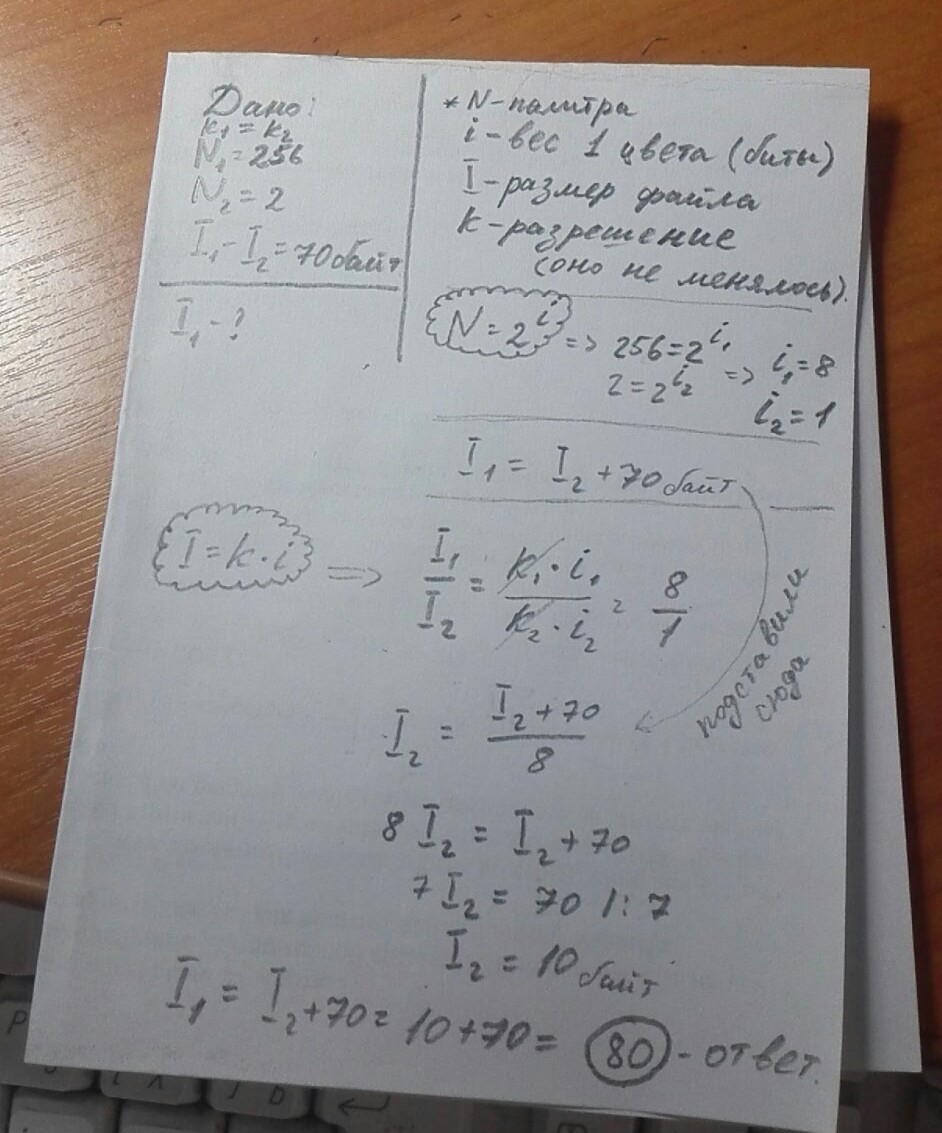 Дано:
k₁ = k₂
N₁ = 256
N₂ = 2
I₁ - I₂ = 70 байт
I₁ - ?
* N - палитра
i - вес 1 цвета (биты)
I - размер файла
K - разрешение
(оно не менялось).
N = 2^i => 256 = 2^i₁ => i₁ = 8
2 = 2^i₂ i₂ = 1
I₁ = I₂ + 70 байт
подставили
сюда
I = k · i => I₁/I₂ = k₁ · i₁ / k₂ · i₂ = 8/1
I₂ = I₂ + 70 / 8
8 I₂ = I₂ + 70
7 I₂ = 70 |: 7
I₂ = 10 байт
I₁ = I₂ + 70 = 10 + 70 = 80 - ответ.